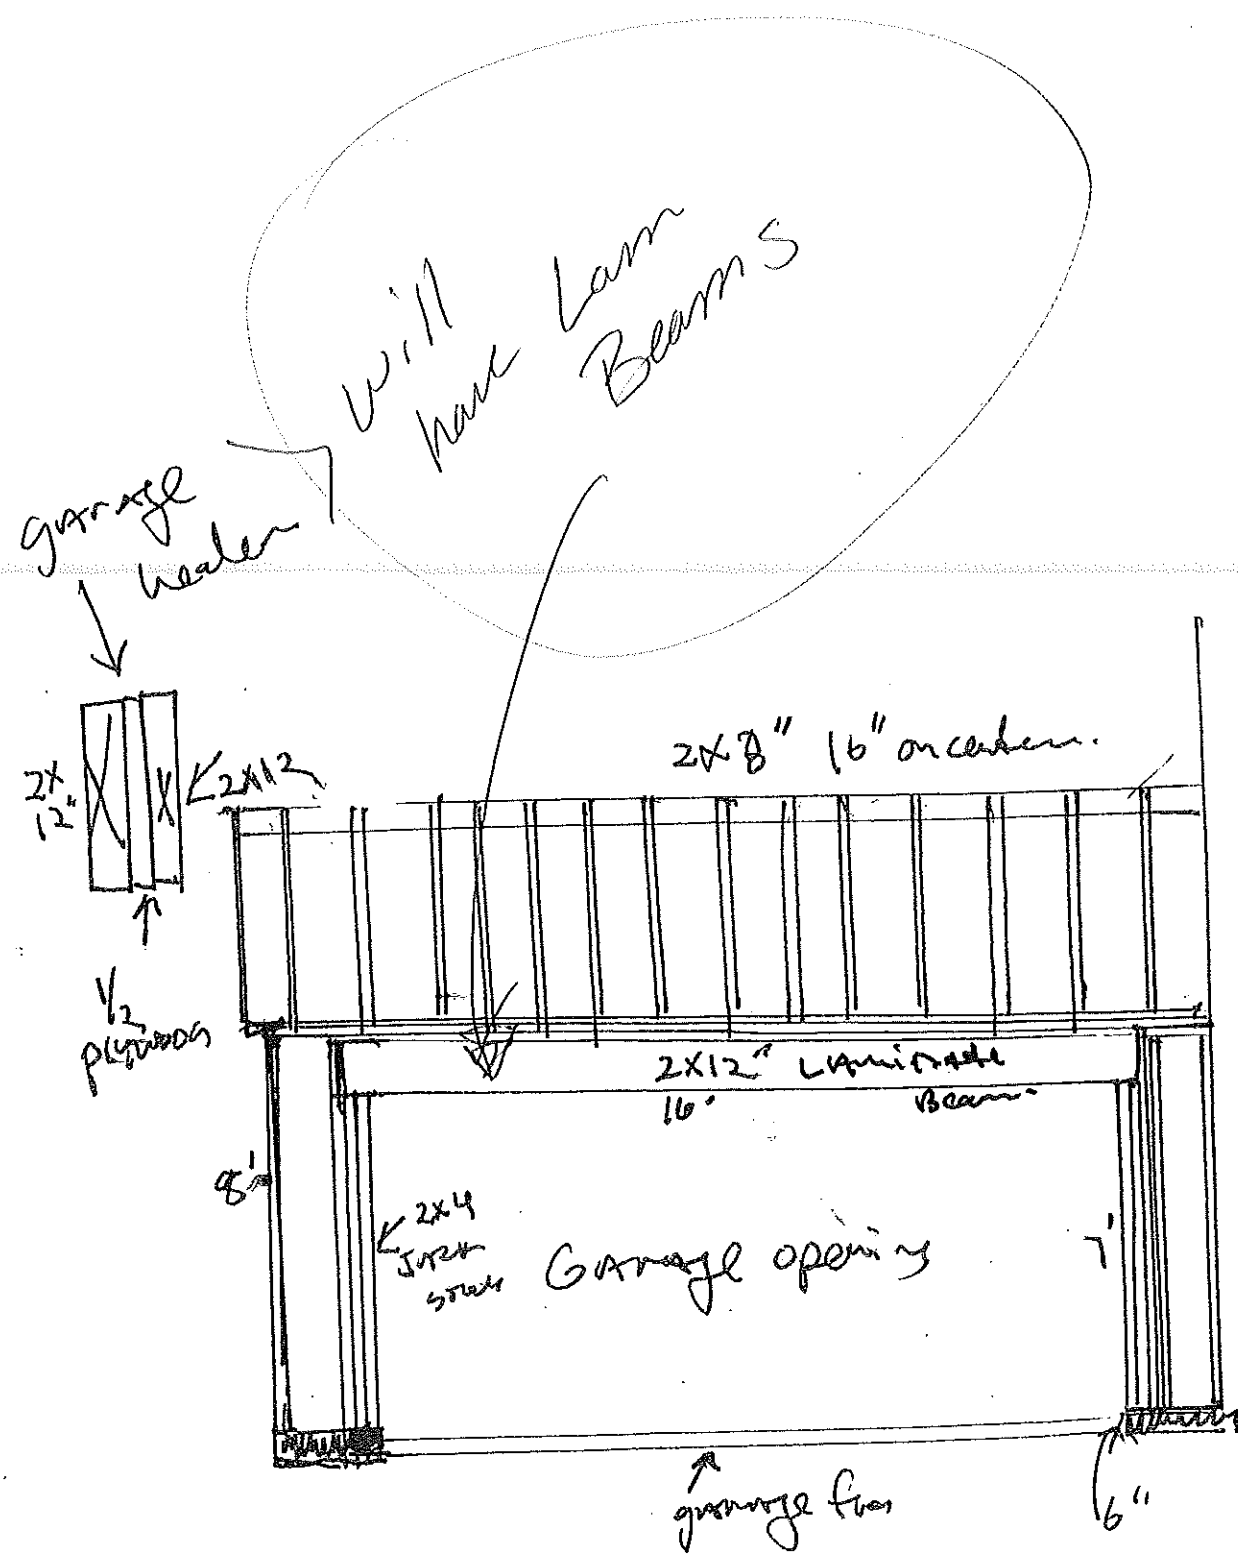 will
have Lam
Beams
garage
header
2x
12"
2x12
1/2
plywood
2x8" 16" on center.
2x12" Laminate
16' Beam.
8'
2x4
Jack
studs
Garage opening
7'
garage
6"